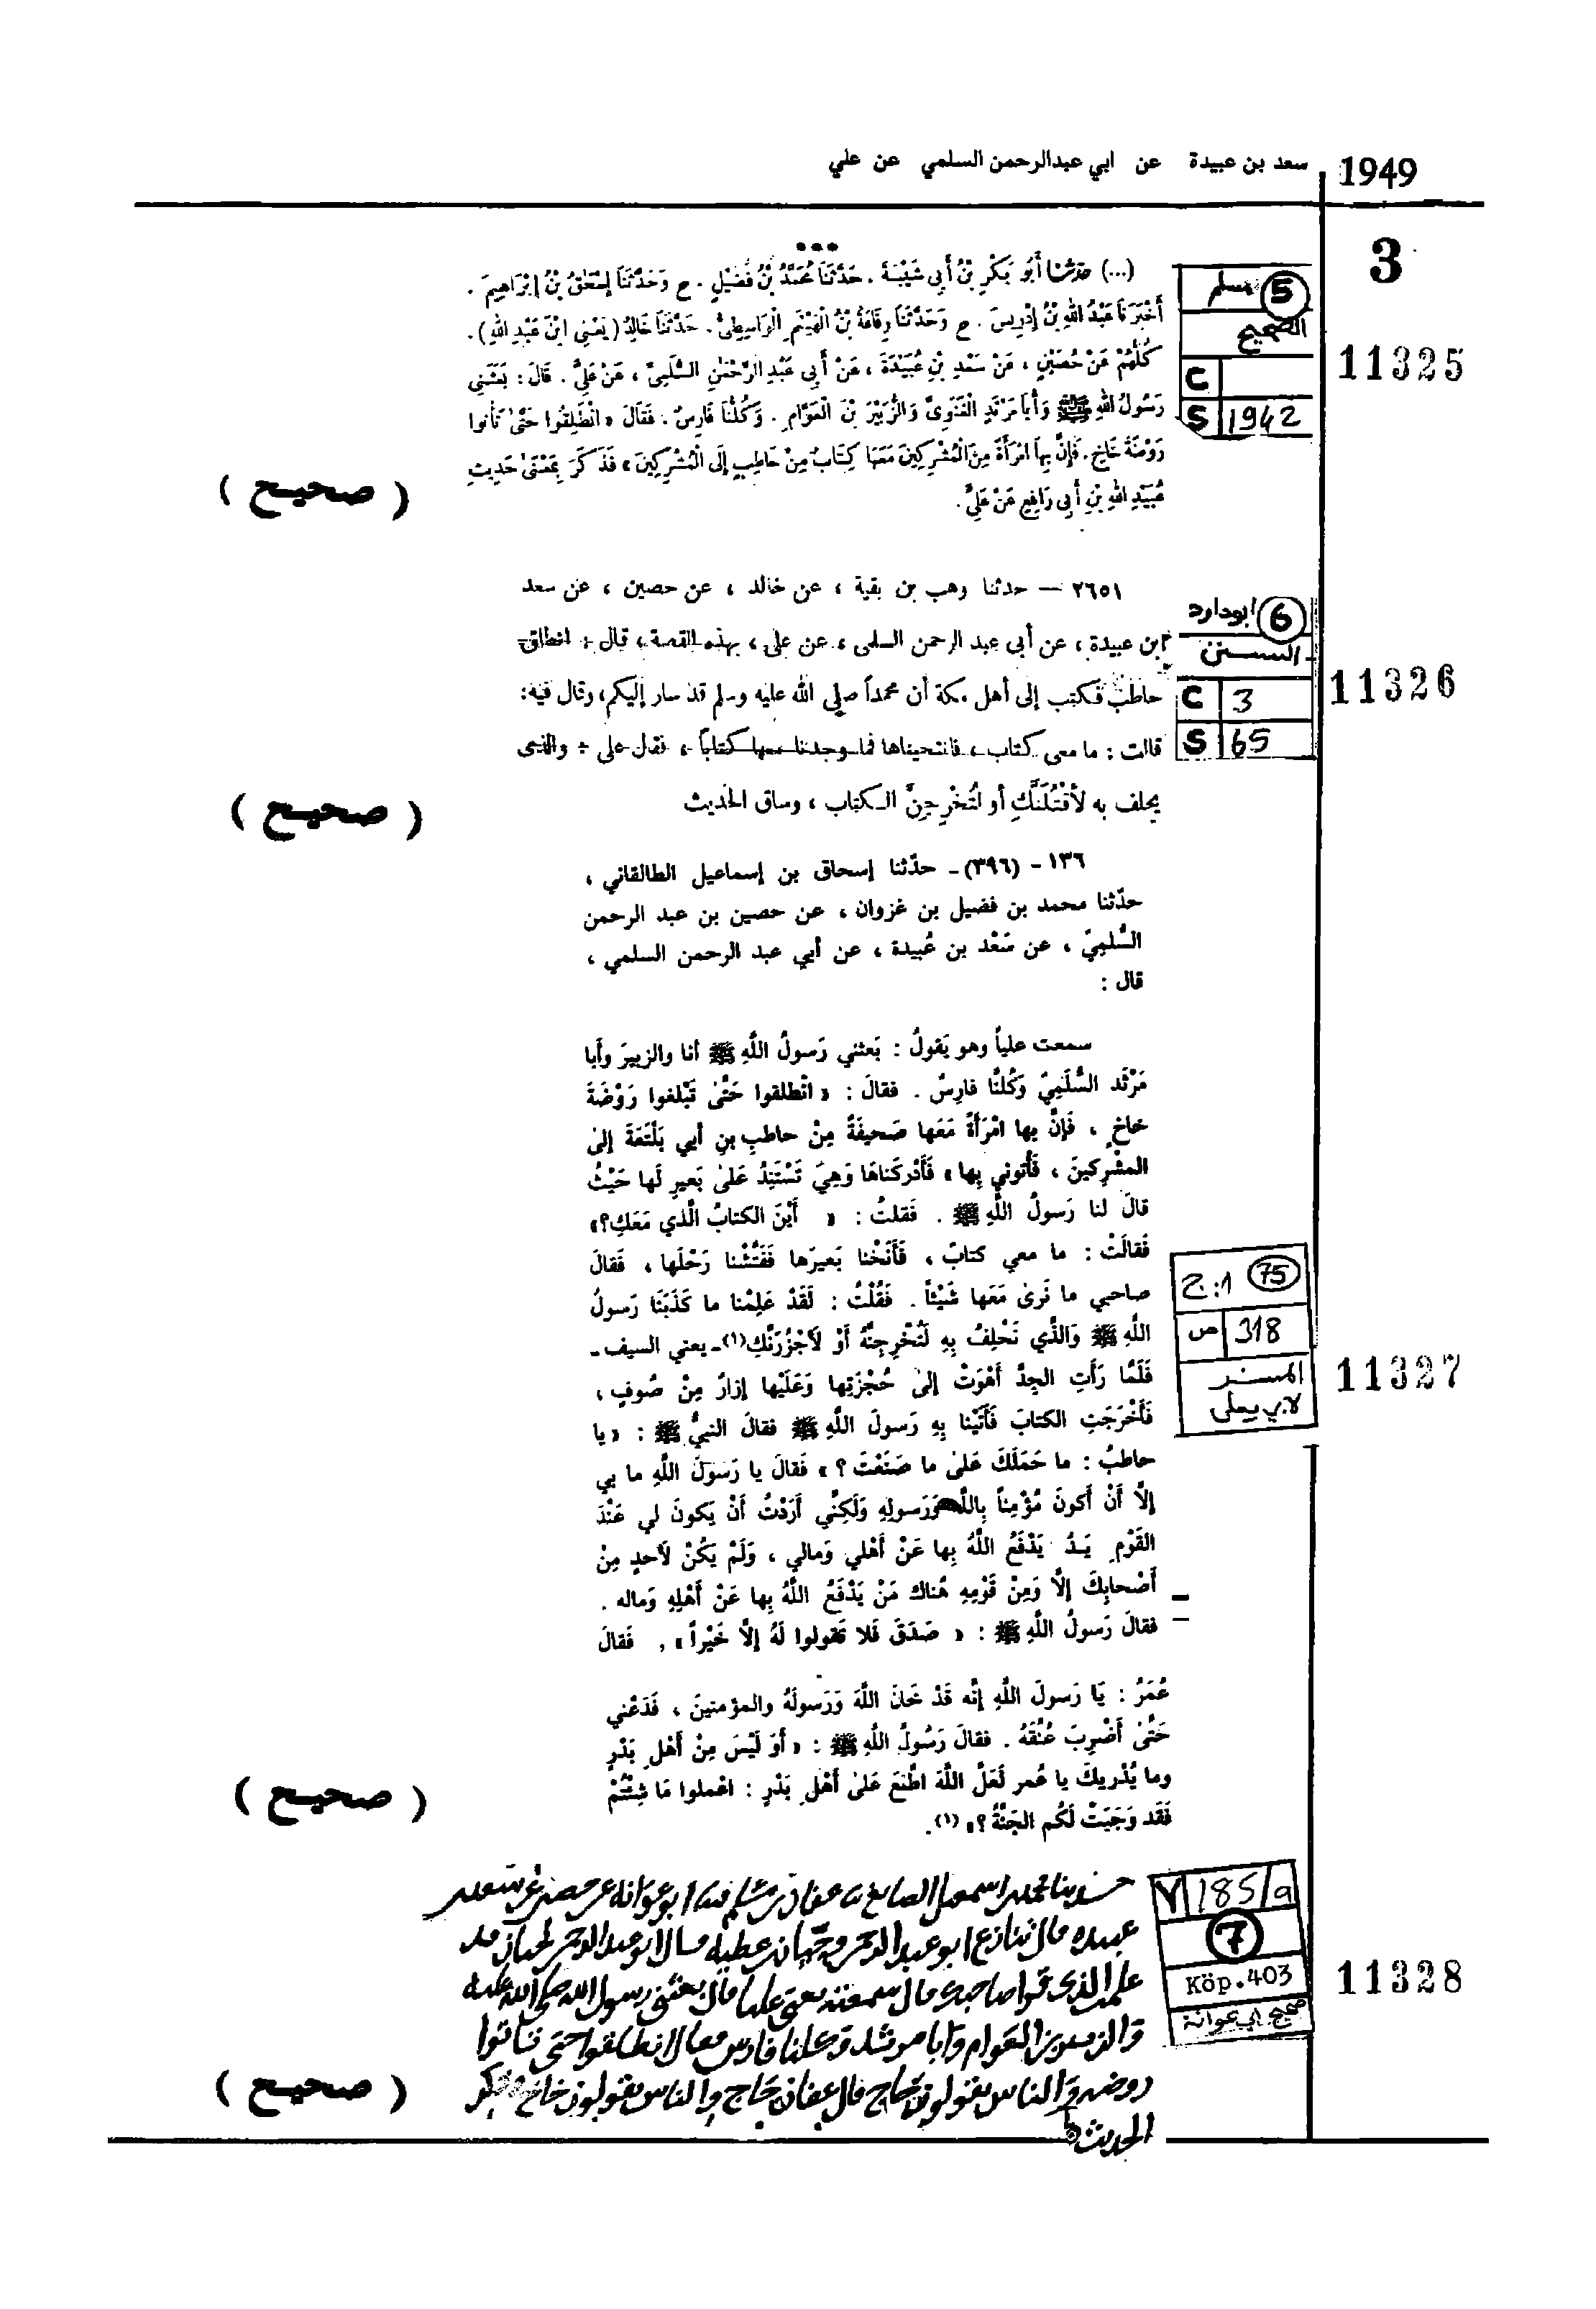 1949
سعد بن عبيدة عن ابي عبدالرحمن السلمي عن علي
3
(...) حدثنا أَبُو بَكْرِ بْنُ أَبِي شَيْبَةَ . حَدَّثَنَا مُحَمَّدُ بْنُ فُضَيْلٍ . ح وَحَدَّثَنَا إِسْحَٰقُ بْنُ إِبْرَاهِيمَ .
أَخْبَرَنَا عَبْدُ اللهِ بْنُ إِدْرِيسَ . ح وَحَدَّثَنَا رِفَاعَةُ بْنُ الْهَيْثَمِ الْوَاسِطِيُّ . حَدَّثَنَا خَالِدٌ ( يَعْنِي ابْنَ عَبْدِ اللهِ ) .
كُلُّهُمْ عَنْ حُصَيْنٍ ، عَنْ سَعْدِ بْنِ عُبَيْدَةَ ، عَنْ أَبِي عَبْدِ الرَّحْمَٰنِ السُّلَمِيِّ ، عَنْ عَلِيٍّ . قَالَ : بَعَثَنِي
رَسُولُ اللهِ ﷺ وَأَبَا مَرْثَدٍ الْغَنَوِيَّ وَالزُّبَيْرَ بْنَ الْعَوَّامِ . وَكُلُّنَا فَارِسٌ . فَقَالَ « انْطَلِقُوا حَتَّىٰ تَأْتُوا
رَوْضَةَ خَاخٍ . فَإِنَّ بِهَا امْرَأَةً مِنَ الْمُشْرِكِينَ مَعَهَا كِتَابٌ مِنْ حَاطِبٍ إِلَى الْمُشْرِكِينَ » فَذَكَرَ بِمَعْنَىٰ حَدِيثِ
عُبَيْدِ اللهِ بْنِ أَبِي رَافِعٍ عَنْ عَلِيٍّ .
( صحيح )
5 مسلم
الصحيح
C
S 1942
11325
٢٦٥١ — حدثنا وهب بن بقية ، عن خالد ، عن حصين ، عن سعد
ابن عبيدة ، عن أبي عبد الرحمن السلمى ، عن على ، بهذه القصة ، قال : انطلق
حاطبٌ فكتب إلى أهل مكة أن محمداً صلى الله عليه وسلم قد سار إليكم ، وقال فيه :
قالت : ما معى كتاب ، فانتحيناها فما وجدنا معها كتاباً ، فقال على : والذى
يحلف به لأَقْتُلَنَّكِ أو لتُخْرِجِنَّ الكتاب ، وساق الحديث
( صحيح )
6 ابوداود
السنن
C 3
S 65
11326
١٣٦ - (٣٩٦) - حدّثنا إسحاق بن إسماعيل الطالقاني ،
حدّثنا محمد بن فضيل بن غزوان ، عن حصين بن عبد الرحمن
السُّلميّ ، عن سَعْد بن عُبيدة ، عن أبي عبد الرحمن السلمي ،
قال :
سمعت علياً وهو يَقولُ : بَعثني رَسولُ اللَّهِ ﷺ أنا والزبيرَ وأبا
مَرْثَد السُّلَمِيّ وَكُلنَّا فارِسٌ . فقالَ : « انْطلقوا حَتَّىٰ تَبْلغوا رَوْضَةَ
خاخٍ ، فَإِنَّ بِها امْرَأَةً مَعَها صَحيفَةٌ مِنْ حاطبِ بنِ أبي بَلْتَعَةَ إلىٰ
المشْرِكينَ ، فَأْتوني بِها » فَأَدْركَناهَا وَهِيَ تَسْتَنِدُ عَلىٰ بَعيرٍ لَها حَيْثُ
قالَ لنا رَسولُ اللَّهِ ﷺ . فَقلتُ : « أَيْنَ الكتابُ الَّذي مَعَكِ؟»
فَقالَتْ : ما معي كتابٌ ، فَأَنَخْنا بَعيرَها فَفَتَّشْنا رَحْلَها ، فَقالَ
صاحبي ما نَرىٰ مَعَها شَيْئاً . فَقُلْتُ : لَقَدْ عَلِمْنا ما كَذَبَنَا رَسولُ
اللَّهِ ﷺ وَالذَّي نَحْلِفُ بِهِ لَتُخْرِجِنَّهُ أوْ لأَجْزُرَنَّكِ(١) - يعني السيف -
فَلَمَّا رَأَتِ الجِدَّ أَهْوَتْ إلىٰ حُجْزَتِها وَعَلَيْها إزارٌ مِنْ صُوفٍ ،
فَأَخْرَجَتِ الكتابَ فَأَتَيْنا بِهِ رَسولَ اللَّهِ ﷺ فقالَ النبيُّ ﷺ : « يا
حاطبُ : ما حَمَلَكَ عَلىٰ ما صَنَعْتَ ؟ » فَقالَ يا رَسولَ اللَّهِ ما بي
إلَّا أنْ أكونَ مُؤْمِناً بِاللَّهِ وَرَسولِهِ وَلَكِنِّي أَرَدْتُ أنْ يَكونَ لي عَنْدَ
القَوْمِ يَدُ يَدْفَعُ اللَّهُ بِها عَنْ أَهْلي وَمالي ، وَلَمْ يَكُنْ لأَحدٍ مِنْ
أَصْحابِكَ إلَّا وَمِنْ قَوْمِهِ هُناك مَنْ يَدْفَعُ اللَّهُ بِها عَنْ أَهْلِهِ وَماله .
فقالَ رَسولُ اللَّهِ ﷺ : « صَدَقَ فَلا تَقولوا لَهُ إلَّا خَيْراً » . فَقالَ
عُمَرُ : يَا رَسولَ اللَّهِ إنَّه قَدْ خَانَ اللَّهَ وَرَسولَهُ والمؤمنينَ ، فَدَعْني
حَتَّىٰ أَضْرِبَ عُنُقَهُ . فقالَ رَسُولُ اللَّهِ ﷺ : « أوَ لَيْسَ مِنْ أَهْلِ بَدْرٍ
وما يُدْريكَ يا عُمر لَعَلَّ اللَّهَ اطَّلَعَ عَلىٰ أَهْلِ بَدْرٍ : اعْملوا مَا شِئْتُمْ
فَقَد وَجَبَتْ لَكُم الجَنَّةُ ؟ » (١) .
( صحيح )
75 ج:١
318 ص
المسند
لابي يعلى
11327
حدثنا محمد بن اسمعيل الصايغ ثنا عفان بن مسلم ثنا ابو عوانه عن حصين عن سعد بن
عبيده قال تنازع ابو عبد الرحمن وحبان بن عطيه فقال ابو عبد الرحمن لحبان قد
علمت الذي صاحبك قال سمعته يعني عليا قال بعثني رسول الله صلى الله عليه
والزبير بن العوام وابا مرثد وكلنا فارس فقال انطلقوا حتى تاتوا
روضه والناس يقولون حاج قال عفان حاج والناس يقولون خاخ
الحديث
( صحيح )
V 185/a
7
Köp. 403
صحيح ابي عوانة
11328